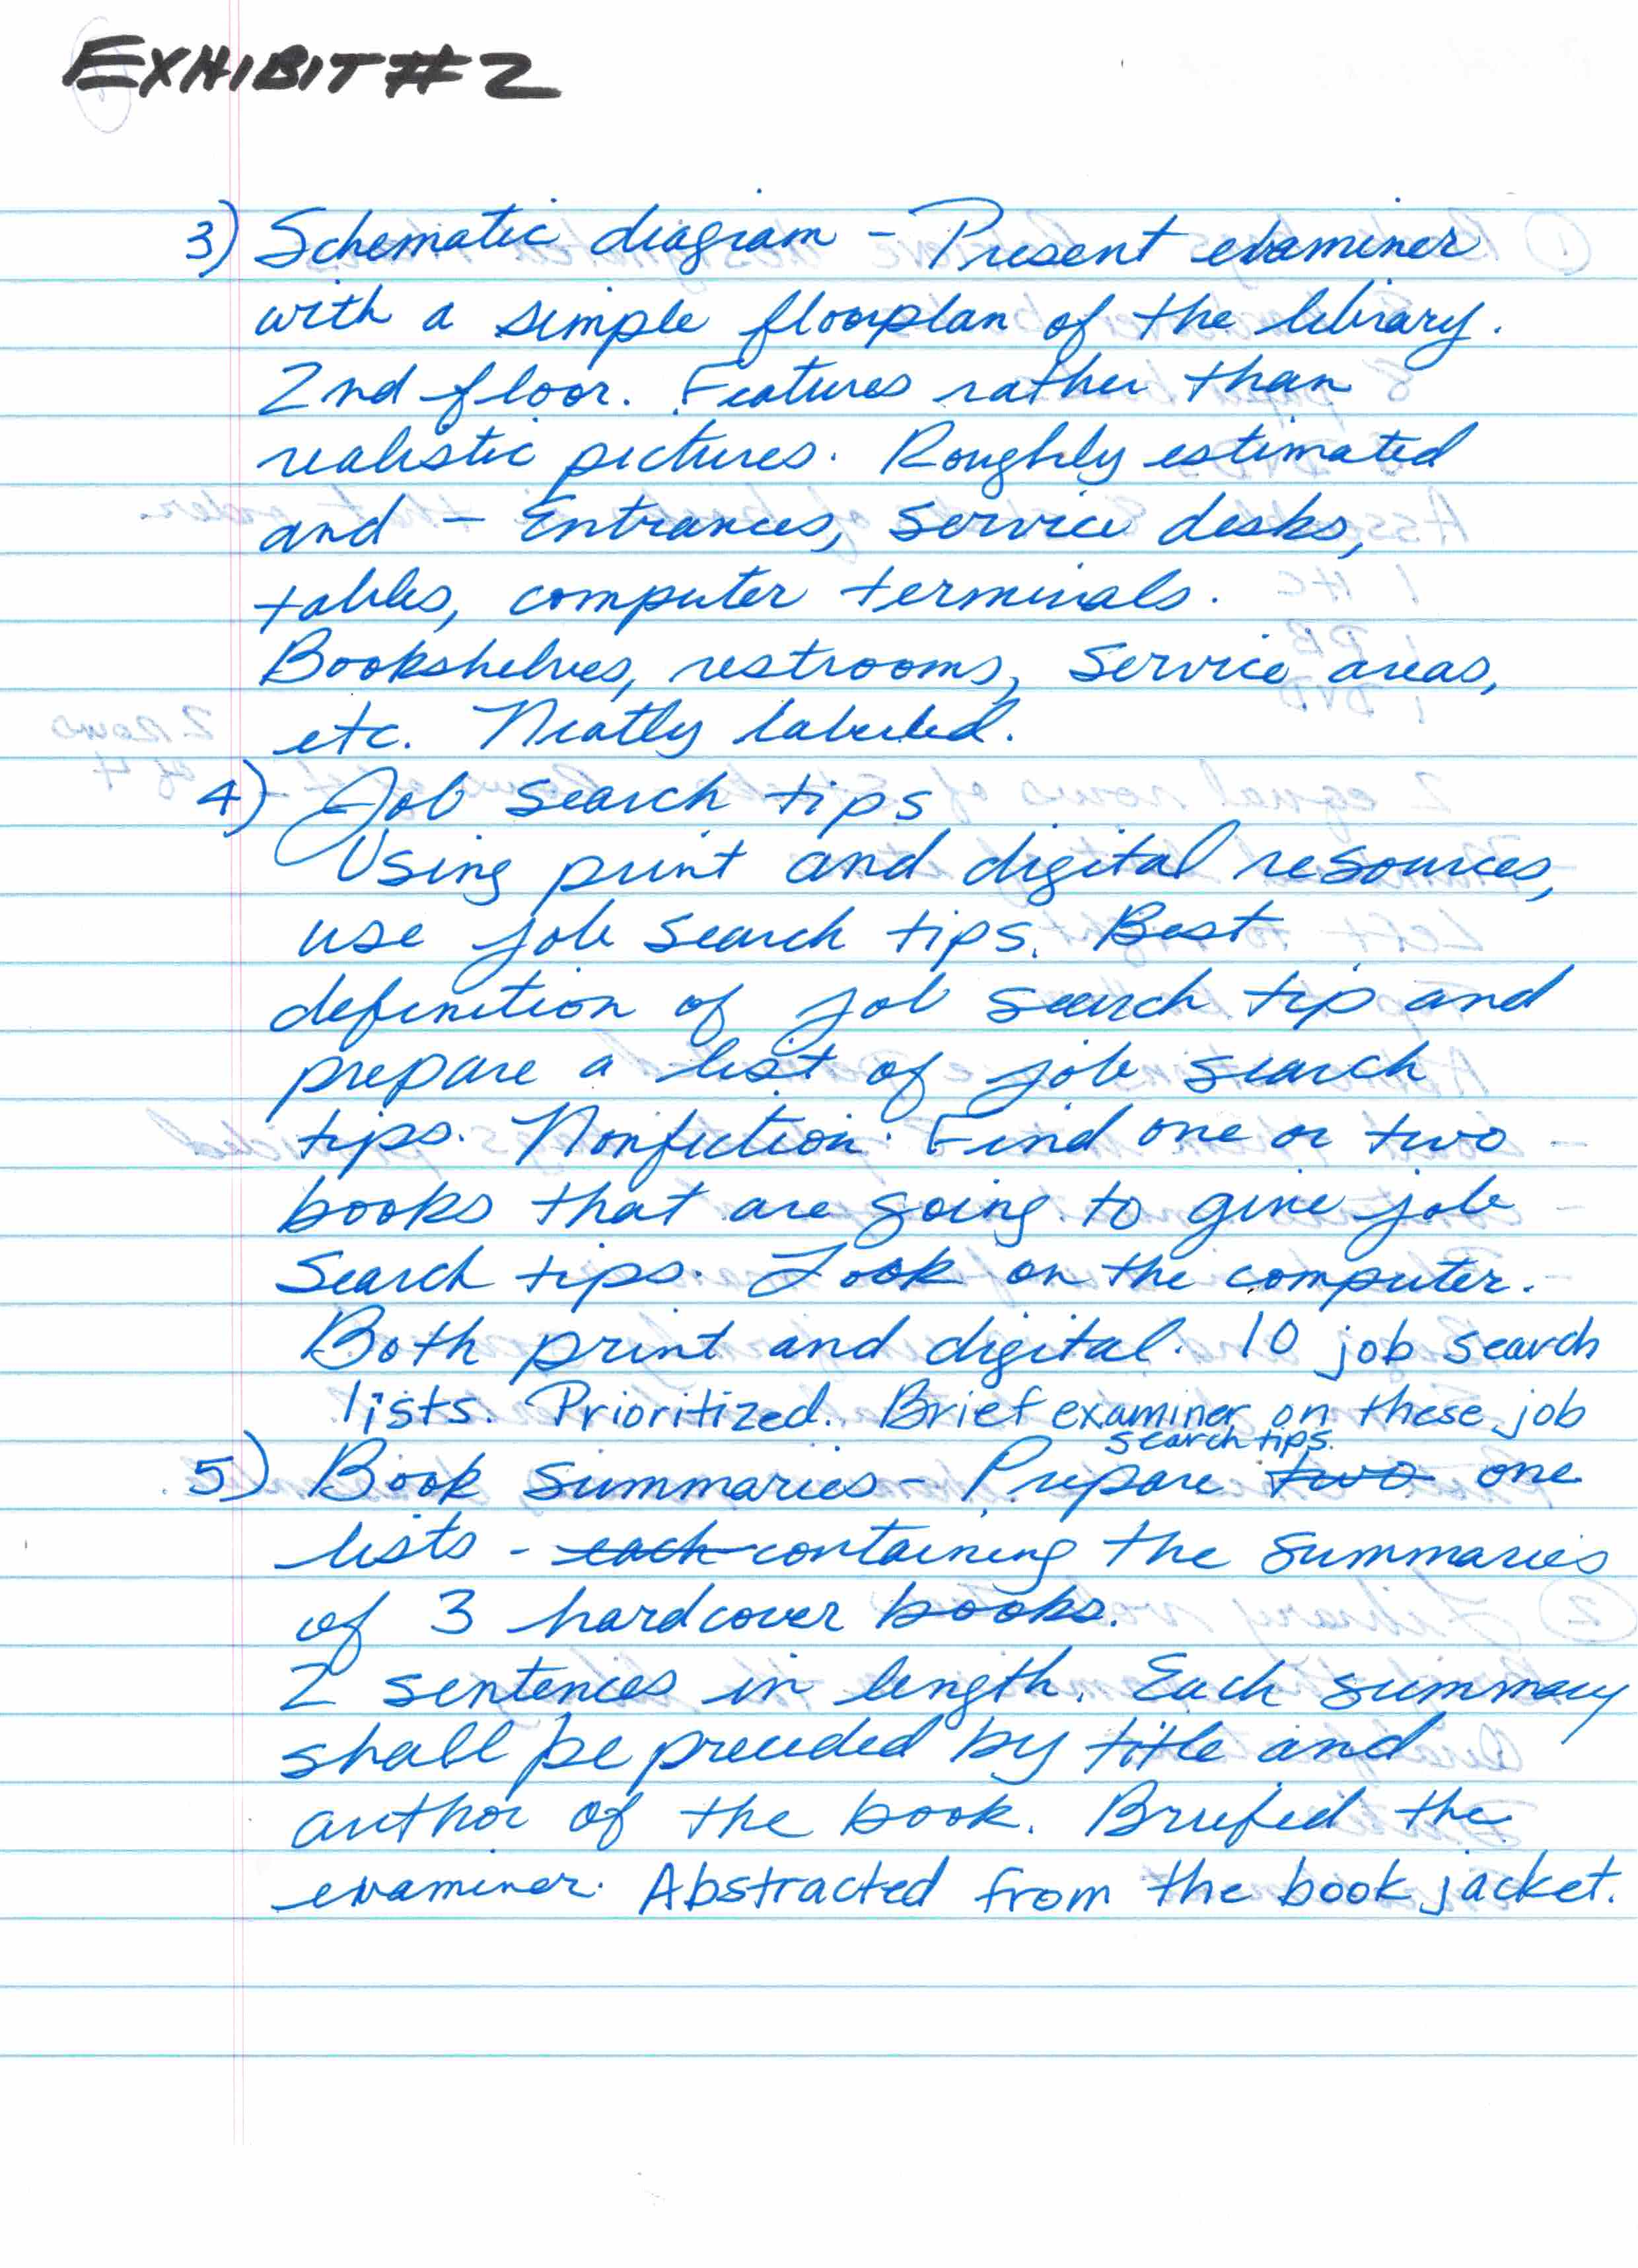 EXHIBIT #2
3) Schematic diagram - Present examiner
with a simple floorplan of the library.
2nd floor. Features rather than
realistic pictures. Roughly estimated
and - Entrances, service desks,
tables, computer terminals.
Bookshelves, restrooms, service areas,
etc. Neatly labeled.
4) Job search tips
Using print and digital resources,
use job search tips. Best
definition of job search tip and
prepare a list of job search
tips. Nonfiction. Find one or two
books that are going to give job
search tips. Look on the computer.
Both print and digital. 10 job search
lists. Prioritized. Brief examiner on these job
search tips.
5) Book summaries - Prepare two one
lists - each containing the summaries
of 3 hardcover books.
2 sentences in length. Each summary
shall be preceded by title and
author of the book. Briefed the
examiner. Abstracted from the book jacket.